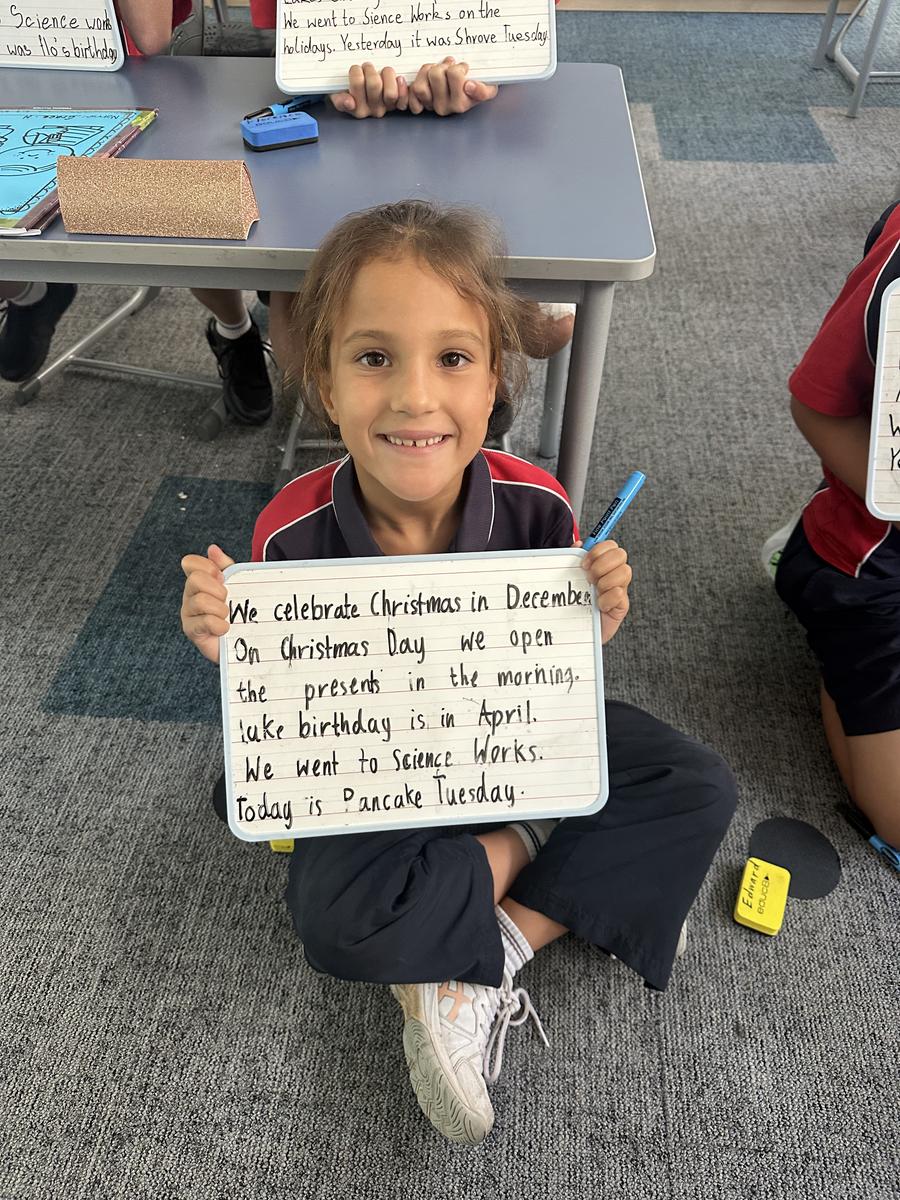 Science work
was Ilo's birthday
We went to Sience Works on the
holidays. Yesterday it was Shrove Tuesday.
We celebrate Christmas in December.
On Christmas Day we open
the presents in the morning.
luke birthday is in April.
We went to Science Works.
Today is Pancake Tuesday.
Edward
educ8